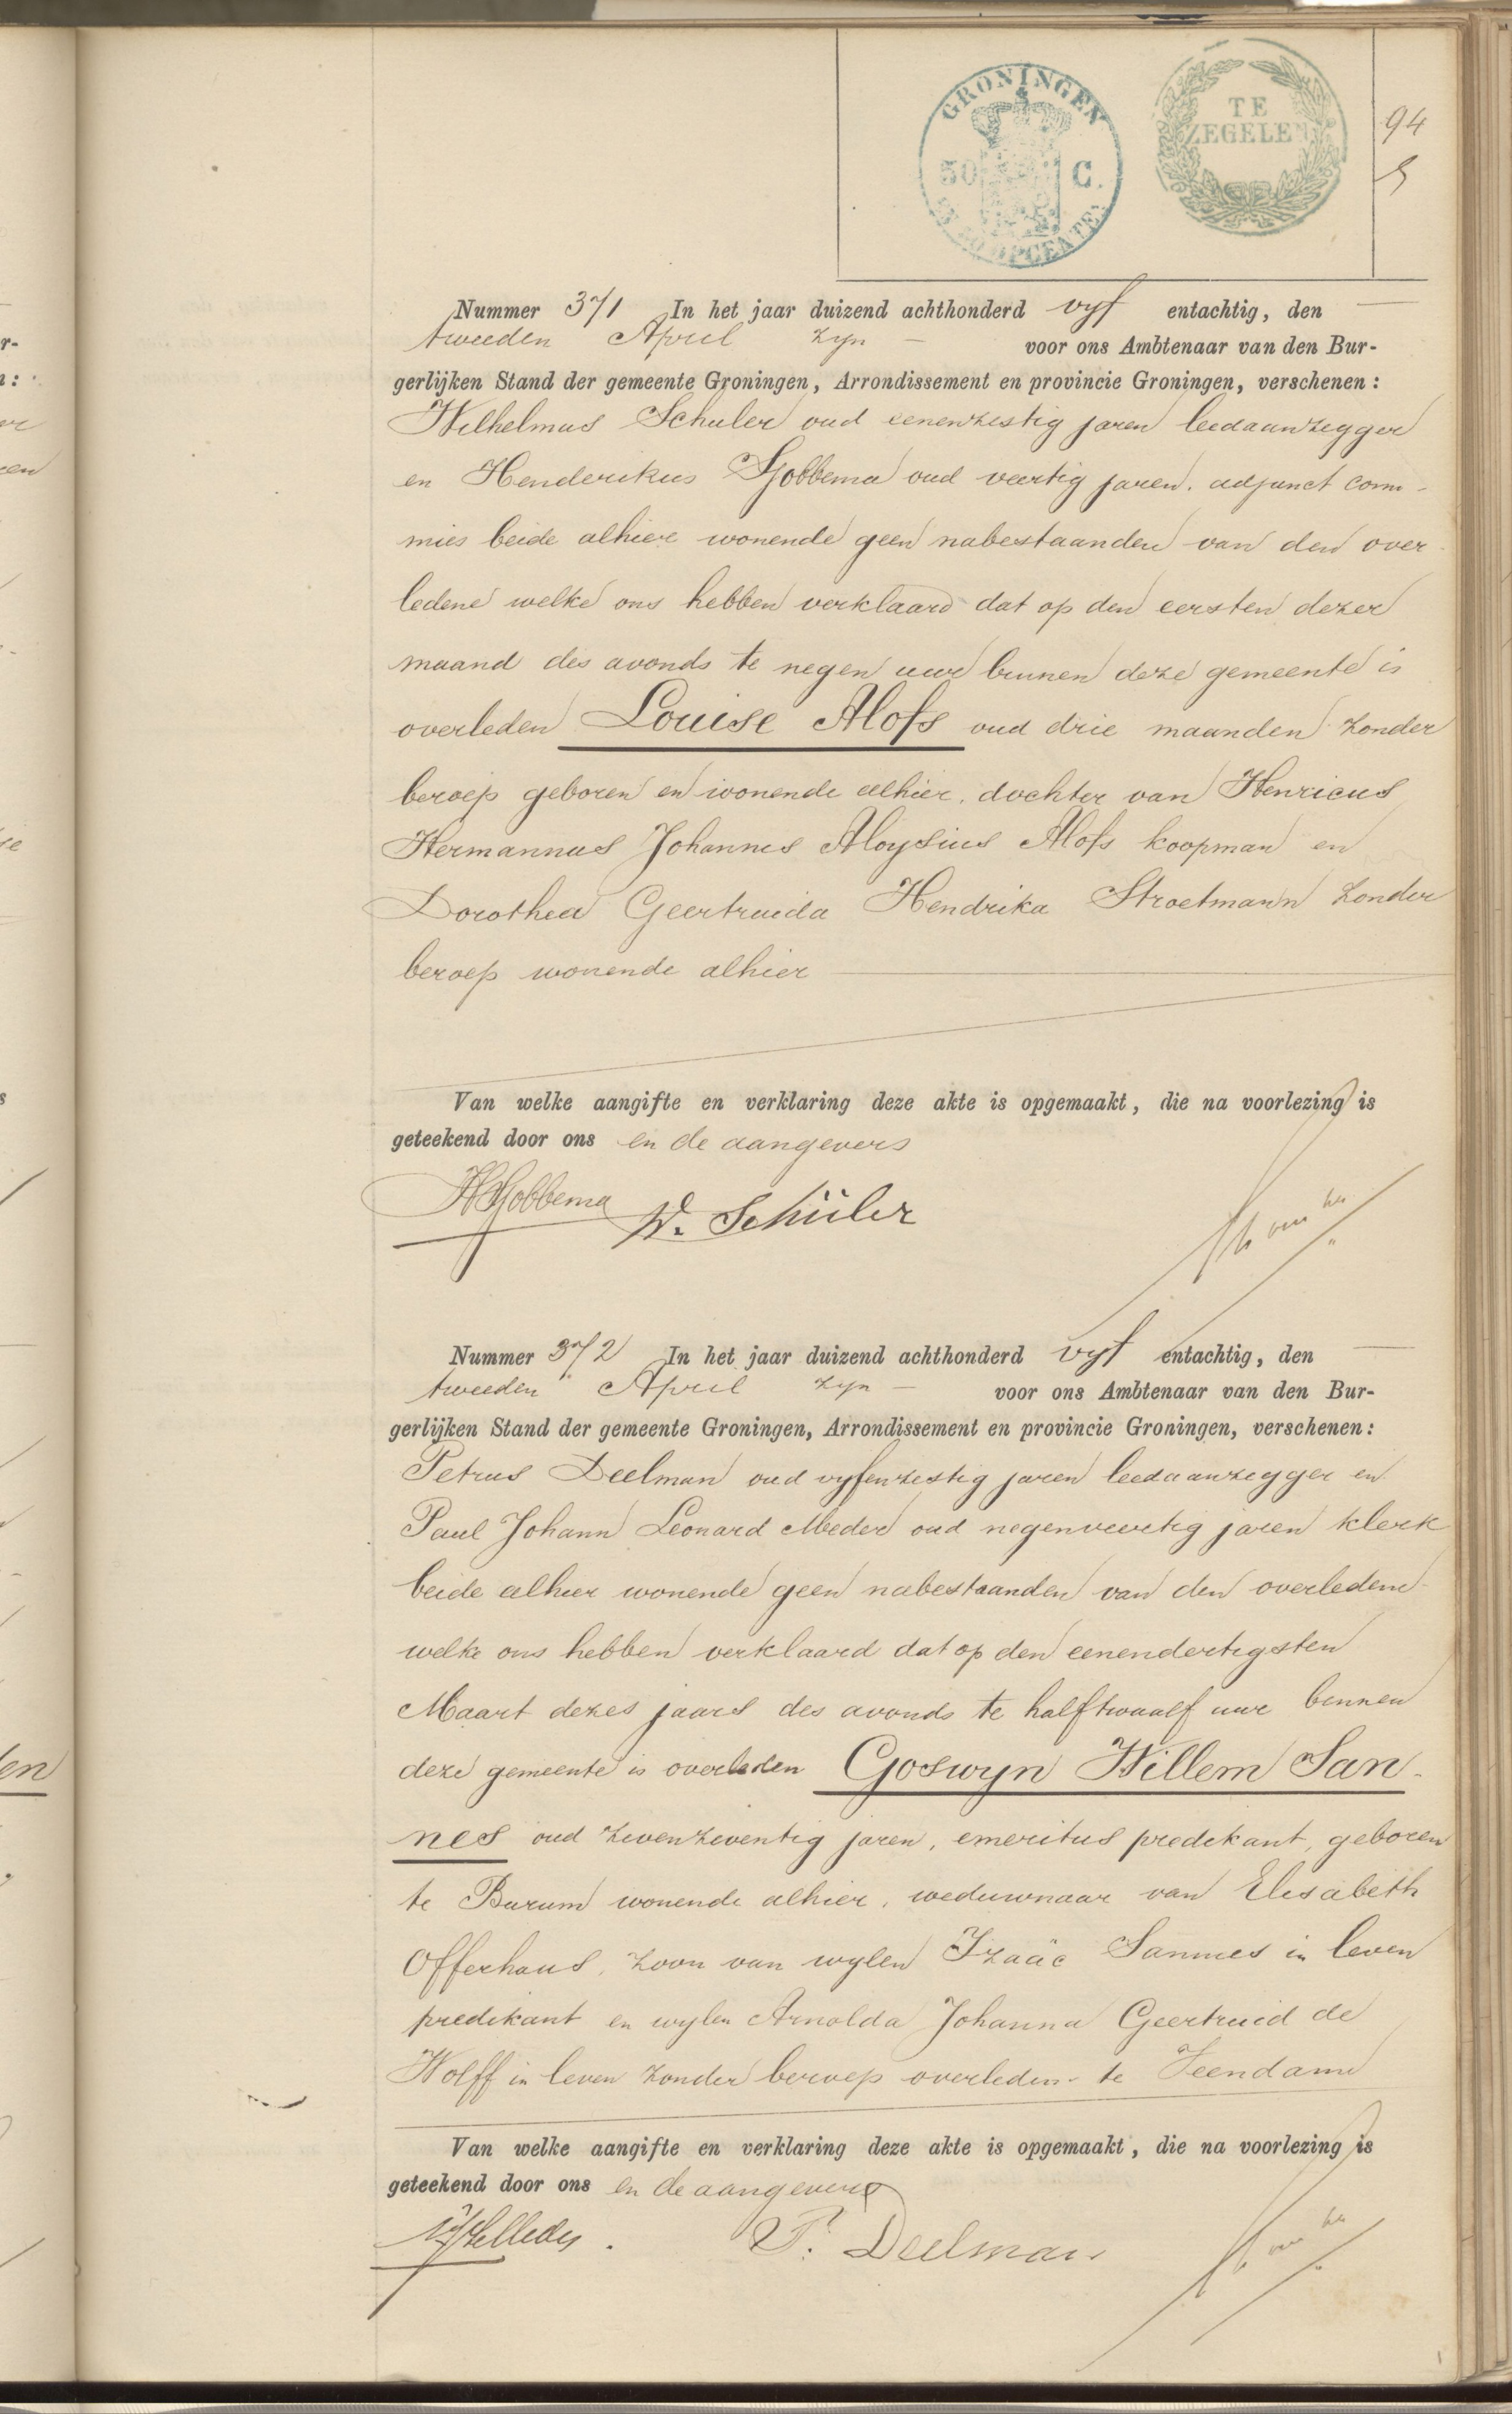 GRONINGEN
50 C.
OPCENTEN
TE
ZEGELEN
94
Nummer 371 In het jaar duizend achthonderd vyf entachtig, den
tweeden April zyn voor ons Ambtenaar van den Bur-
gerlijken Stand der gemeente Groningen, Arrondissement en provincie Groningen, verschenen:
Wilhelmus Schuler oud eenenzestig jaren leedaanzegger
en Henderikus Sjobbema oud veertig jaren. adjunct com-
mies beide alhier wonende geen nabestaanden van den over
ledene welke ons hebben verklaard dat op den eersten dezer
maand des avonds te negen ure binnen deze gemeente is
overleden Louise Alofs oud drie maanden zonder
beroep geboren en wonende alhier, dochter van Henricus
Hermannus Johannes Aloysius Alofs koopman en
Dorothea Geertruida Hendrika Stroetmann zonder
beroep wonende alhier
Van welke aangifte en verklaring deze akte is opgemaakt, die na voorlezing is
geteekend door ons en de aangevers
HSjobbema W. Schüler
Nummer 372 In het jaar duizend achthonderd vyf entachtig, den
tweeden April zyn voor ons Ambtenaar van den Bur-
gerlijken Stand der gemeente Groningen, Arrondissement en provincie Groningen, verschenen:
Petrus Deelman oud vyfenzestig jaren leedaanzegger en
Paul Johann Leonard Meder oud negenveertig jaren klerk
beide alhier wonende geen nabestaanden van den overledene
welke ons hebben verklaard dat op den eenendertigsten
Maart dezes jaars des avonds te half twaalf ure binnen
deze gemeente is overleden Goswyn Willem San-
nes oud zevenzeventig jaren, emeritus predikant, geboren
te Burum wonende alhier, weduwnaar van Elisabeth
Offerhaus, zoon van wylen Izaäc Sannes in leven
predikant en wylen Arnolda Johanna Geertruid de
Wolff in leven zonder beroep overleden te Veendam
Van welke aangifte en verklaring deze akte is opgemaakt, die na voorlezing is
geteekend door ons en de aangevers
P. Deelman